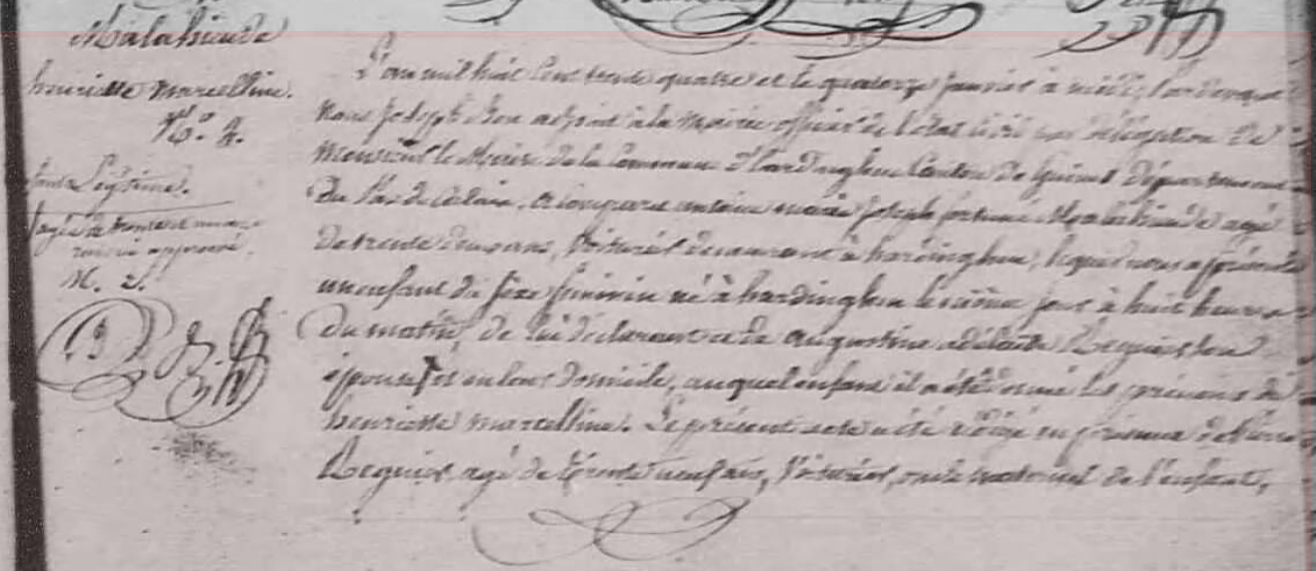 Malahieude
henriette marcelline.
N.º 4.
Légitime.
approuvé.
N. 2.
L'an mil huit cent trente quatre et le quatorze janvier à midi, Par devant
Nous Joseph Bon adjoint à la Mairie officier de l'état civil par délégation de
Monsieur le Maire de la Commune d'hardinghen Canton de Guînes Département
Du Pas de Calais, a comparu antoine marie joseph fortuné Malahieude agé
de trente deux ans, Voiturier demeurant à hardinghen, lequel nous a présenté
un enfant du sexe féminin né à hardinghen le même jour à huit heures
Du matin, de lui déclarant et de augustine adélaïde Lequien son
épouse et en leur Domicile, auquel enfant il a été donné les prénoms de
henriette marcelline. Le présent acte a été rédigé en présence de
Lequien agé de trente neuf ans, Voiturier, oncle maternel de l'enfant,